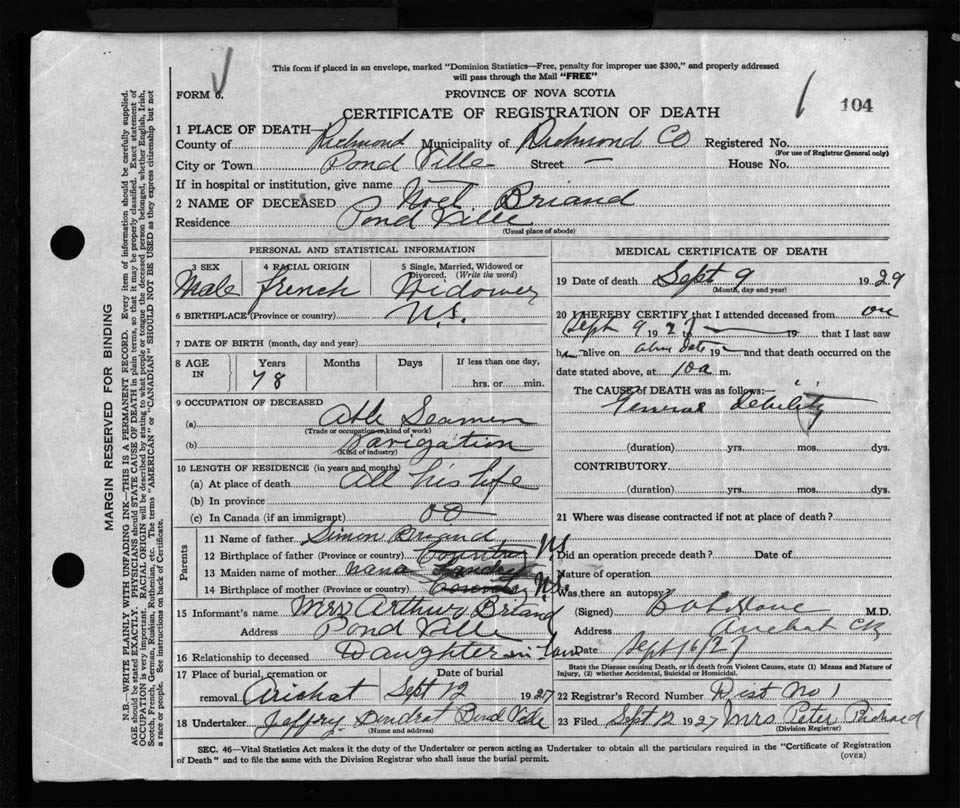 This form if placed in an envelope, marked "Dominion Statistics—Free, penalty for improper use $300," and properly addressed
will pass through the Mail "FREE"
FORM 6.
PROVINCE OF NOVA SCOTIA
CERTIFICATE OF REGISTRATION OF DEATH
104
1 PLACE OF DEATH—
County of Richmond Municipality of Richmond Co Registered No.
(For use of Registrar General only)
City or Town Pond Ville Street — House No.
If in hospital or institution, give name —
2 NAME OF DECEASED Noel Briand
Residence Pond Ville
(Usual place of abode)
PERSONAL AND STATISTICAL INFORMATION
3 SEX Male
4 RACIAL ORIGIN french
5 Single, Married, Widowed or Divorced. (Write the word) Widower
6 BIRTHPLACE (Province or country) N.S.
7 DATE OF BIRTH (month, day and year)
8 AGE IN Years 78 Months Days If less than one day, hrs. or min.
9 OCCUPATION OF DECEASED
(a) Able Seamen
(Trade or occupation or kind of work)
(b) Navigation
(Kind of industry)
10 LENGTH OF RESIDENCE (in years and months)
(a) At place of death All his life
(b) In province
(c) In Canada (if an immigrant)
Parents
11 Name of father Simon Briand
12 Birthplace of father (Province or country) N.S.
13 Maiden name of mother Nana
14 Birthplace of mother (Province or country) N.S.
15 Informant's name Mrs Arthur Briand
Address Pond Ville
16 Relationship to deceased Daughter in law
17 Place of burial, cremation or removal Arichat
Date of burial Sept 12 1927
18 Undertaker Jeffory Pond Ville
(Name and address)
MEDICAL CERTIFICATE OF DEATH
19 Date of death Sept 9 1929
(Month, day and year)
20 I HEREBY CERTIFY that I attended deceased from on
Sept 9 1927 — 19 that I last saw
h alive on above date 19 — and that death occurred on the
date stated above, at 10 a m.
The CAUSE OF DEATH was as follows:—
General debility
(duration) yrs. mos. dys.
CONTRIBUTORY
(duration) yrs. mos. dys.
21 Where was disease contracted if not at place of death?
Did an operation precede death? Date of
Nature of operation
Was there an autopsy?
(Signed) M.D.
Address Arichat CB
Date Sept 16/27
State the Disease causing Death, or in death from Violent Causes, state (1) Means and Nature of
Injury, (2) whether Accidental, Suicidal or Homicidal.
22 Registrar's Record Number Dist No 1
23 Filed Sept 12 1927 Mrs Peter Richard
(Division Registrar)
SEC. 46—Vital Statistics Act makes it the duty of the Undertaker or person acting as Undertaker to obtain all the particulars required in the "Certificate of Registration
of Death" and to file the same with the Division Registrar who shall issue the burial permit.
(OVER)
MARGIN RESERVED FOR BINDING
N.B.—WRITE PLAINLY WITH UNFADING INK—THIS IS A PERMANENT RECORD. Every item of information should be carefully supplied.
AGE should be stated EXACTLY. PHYSICIANS should STATE CAUSE OF DEATH in plain terms, so that it may be properly classified. Exact statement of
OCCUPATION is very important. RACIAL ORIGIN will be described by stating to what people or tongue the deceased person belonged, whether English, Irish,
Scotch, French, German, Russian, Ruthenian, etc. The terms "AMERICAN" or "CANADIAN" SHOULD NOT BE USED as they express citizenship but not
a race or people. See instructions on back of Certificate.